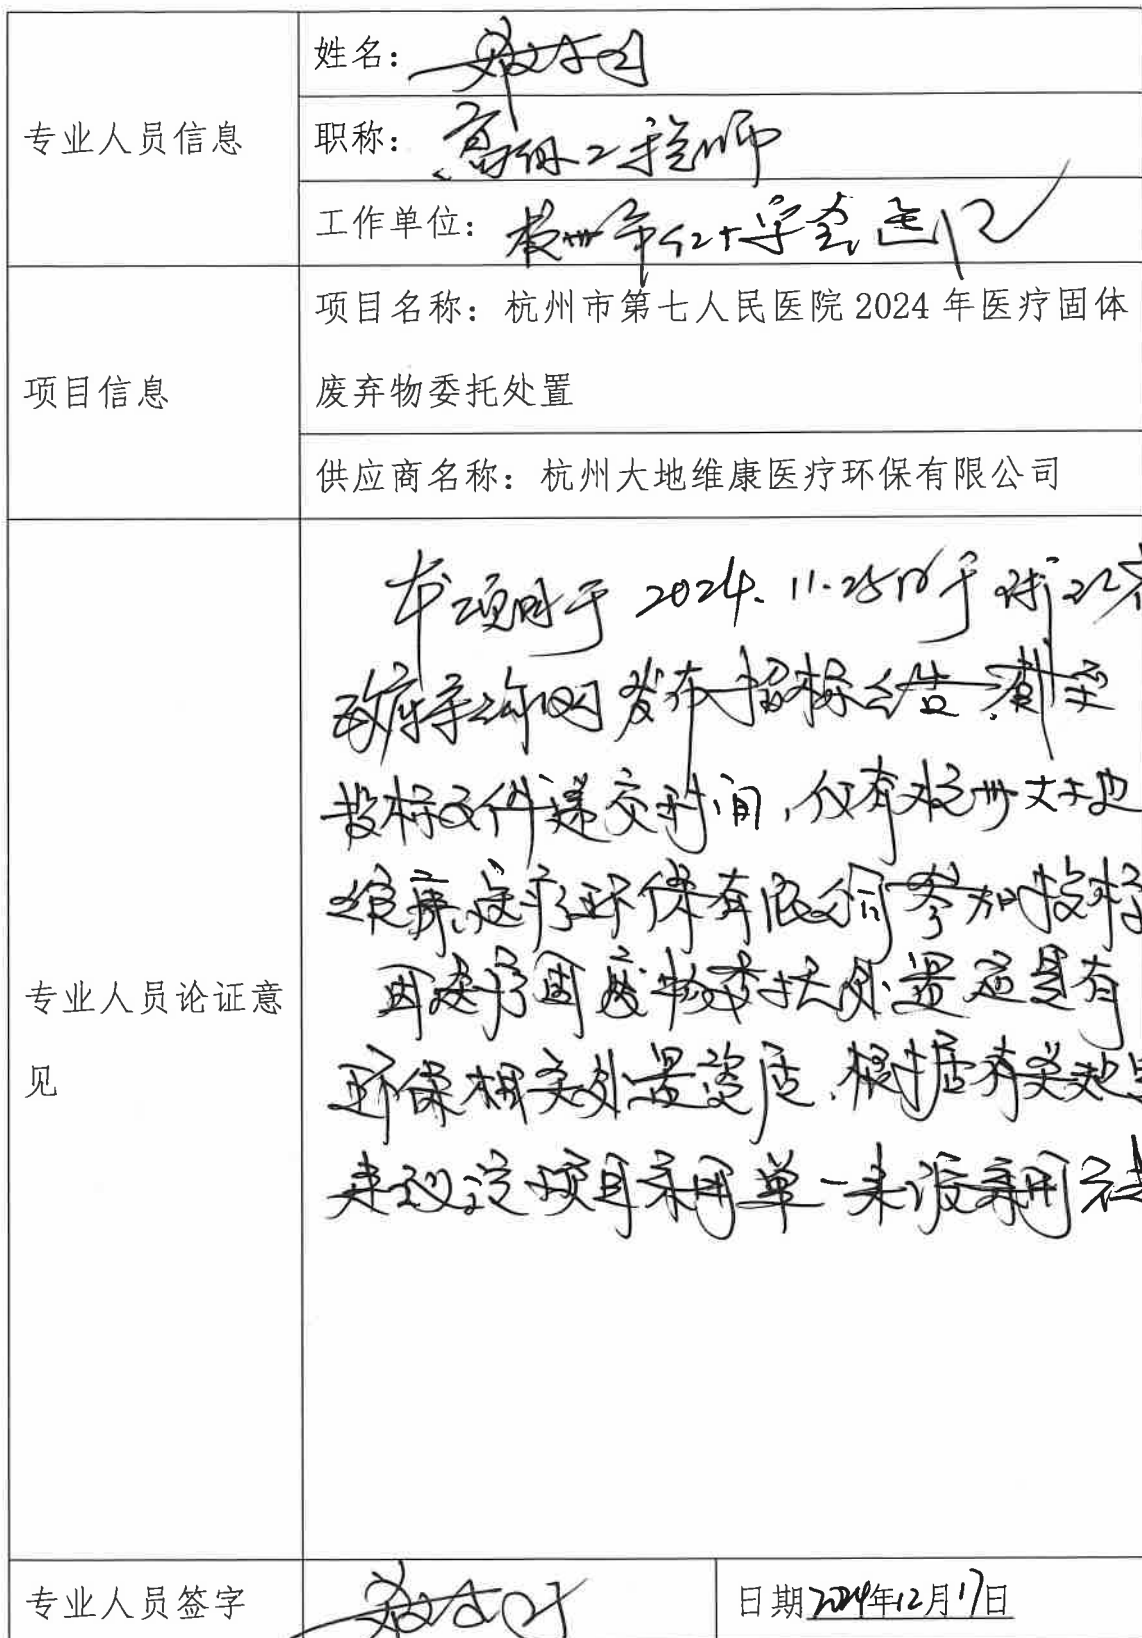 专业人员信息
姓名：
职称：高级工程师
工作单位：杭州市红十字会医院
项目信息
项目名称：杭州市第七人民医院 2024 年医疗固体
废弃物委托处置
供应商名称：杭州大地维康医疗环保有限公司
专业人员论证意
见
本项目于 2024.11.25日于浙江省
政府采购网发布招标公告，截至
投标文件递交时间，仅有杭州大地
维康医疗环保有限公司参加投标
因医疗固废物委托处置应具有
环保相关处置资质，根据有关
建议该项目采用单一来源采用
专业人员签字
日期2024年12月17日